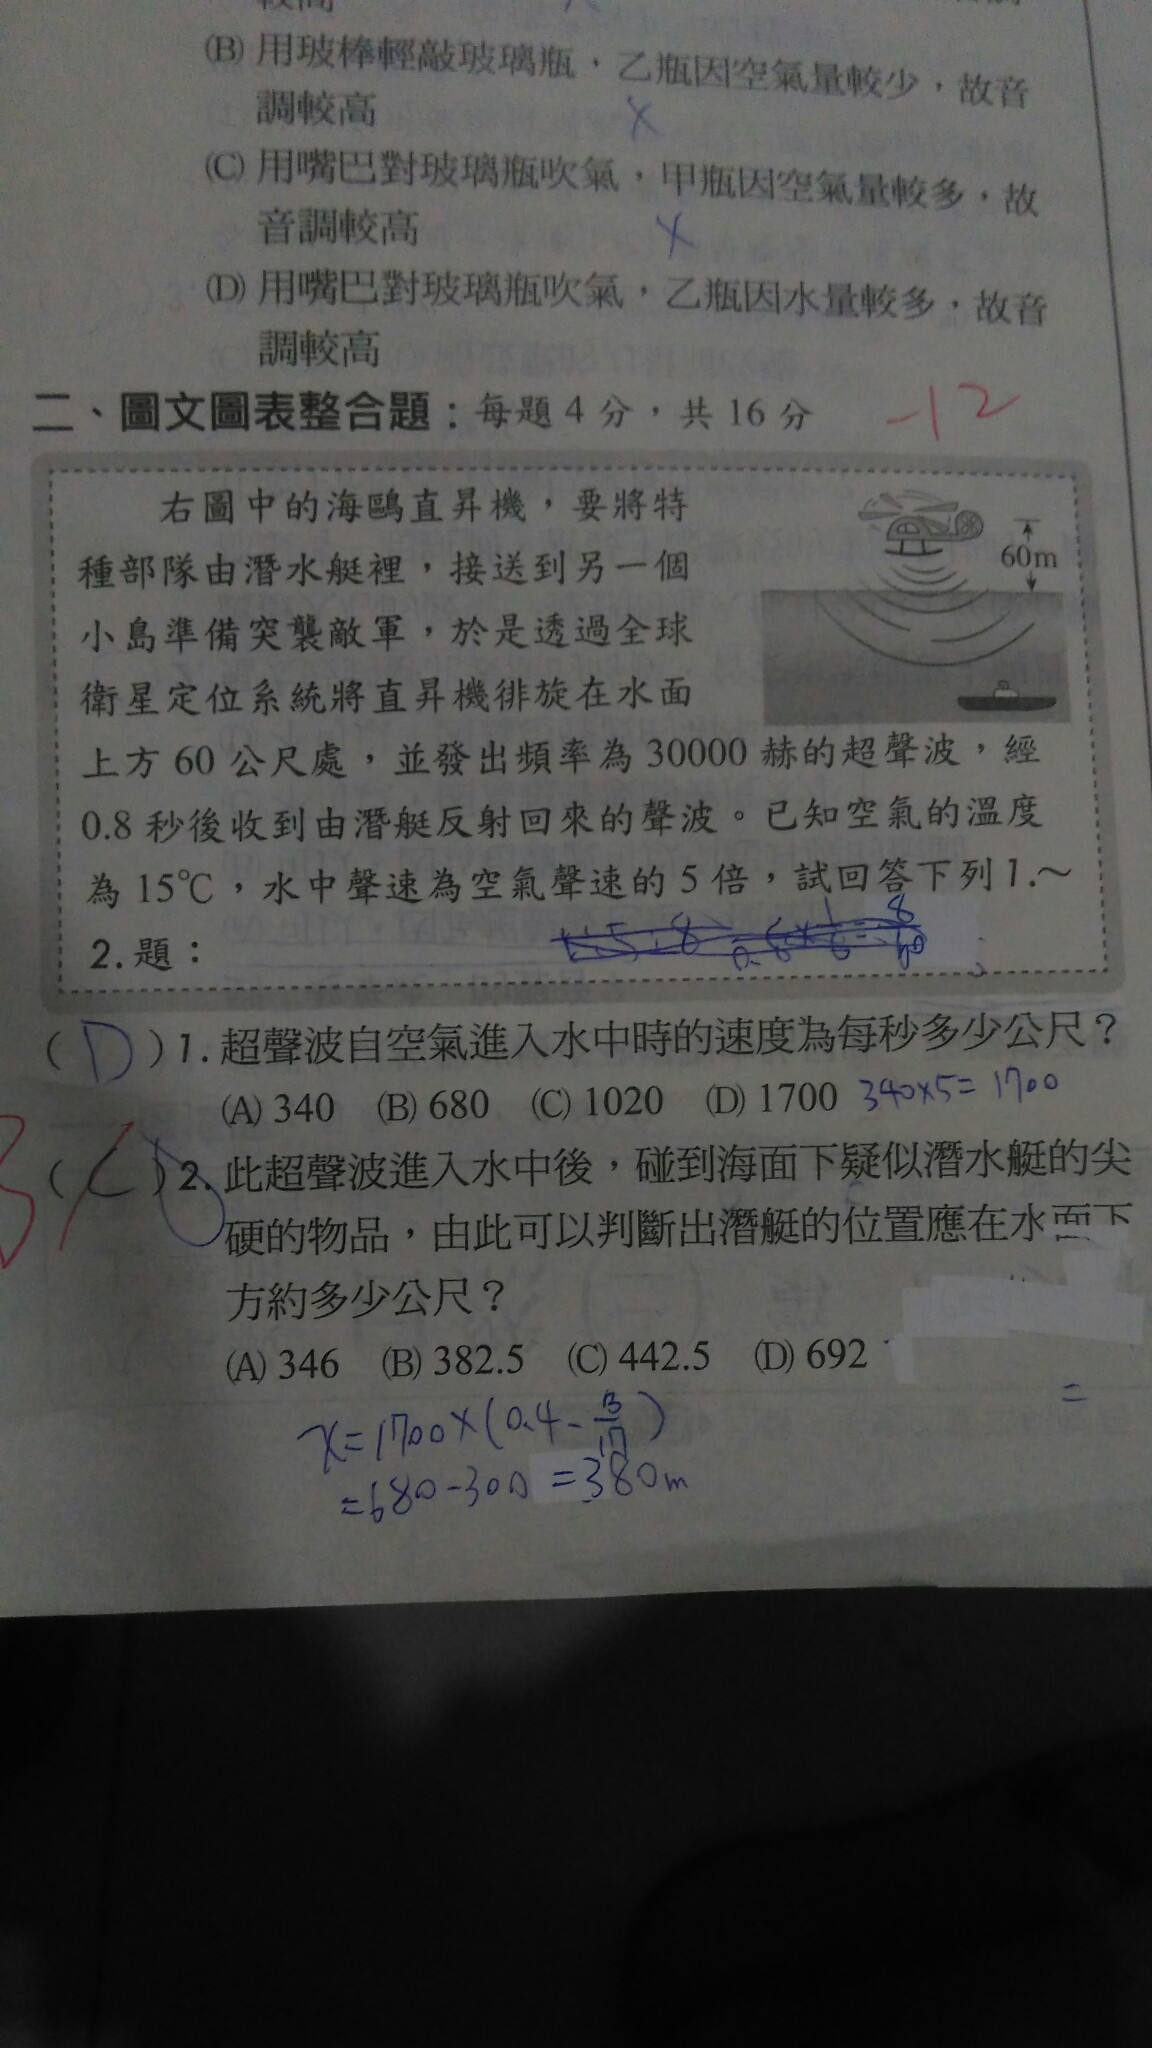 較高
(B) 用玻棒輕敲玻璃瓶，乙瓶因空氣量較少，故音
調較高
(C) 用嘴巴對玻璃瓶吹氣，甲瓶因空氣量較多，故
音調較高
(D) 用嘴巴對玻璃瓶吹氣，乙瓶因水量較多，故音
調較高
二、圖文圖表整合題：每題 4 分，共 16 分 -12
右圖中的海鷗直昇機，要將特
種部隊由潛水艇裡，接送到另一個
小島準備突襲敵軍，於是透過全球
衛星定位系統將直昇機徘旋在水面
60m
上方 60 公尺處，並發出頻率為 30000 赫的超聲波，經
0.8 秒後收到由潛艇反射回來的聲波。已知空氣的溫度
為 15℃，水中聲速為空氣聲速的 5 倍，試回答下列 1.～
2. 題：
( D ) 1. 超聲波自空氣進入水中時的速度為每秒多少公尺？
(A) 340 (B) 680 (C) 1020 (D) 1700 340×5=1700
( C ) 2. 此超聲波進入水中後，碰到海面下疑似潛水艇的尖
硬的物品，由此可以判斷出潛艇的位置應在水面下
方約多少公尺？
(A) 346 (B) 382.5 (C) 442.5 (D) 692
=
x=1700×(0.4-3/17)
=680-300=380m